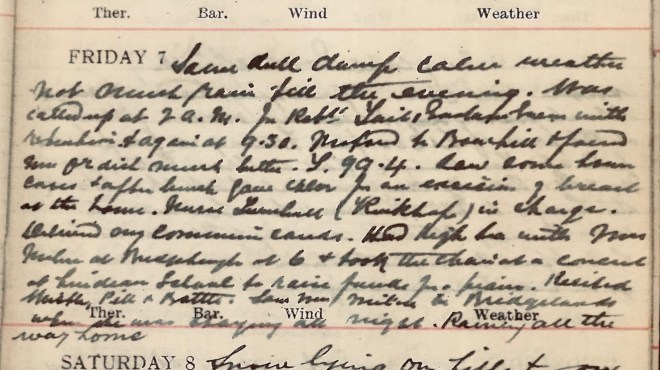 Ther. Bar. Wind Weather
FRIDAY 7 Same dull damp calm weather
not much rain till the evening. Was
called up at 2 A.M. for Robt. Tait, with
& again at 9.30. to Bowhill & found
much better. T. 99.4. Saw some town
cases & after lunch gave chlor for an excision of breast
at the home. Nurse Turnbull (Kirkhope) in charge.
my communion cards. Had high tea with Mrs
Milne at at 6 & took the chair at a concert
at Lindean School to raise funds for a piano. Recited
Pill & Bottle. Saw Mrs Milne to Bridgelands
Ther. Bar. Wind Weather
where she was staying all night. Rained all the
way home
SATURDAY 8 Snow lying on hills &